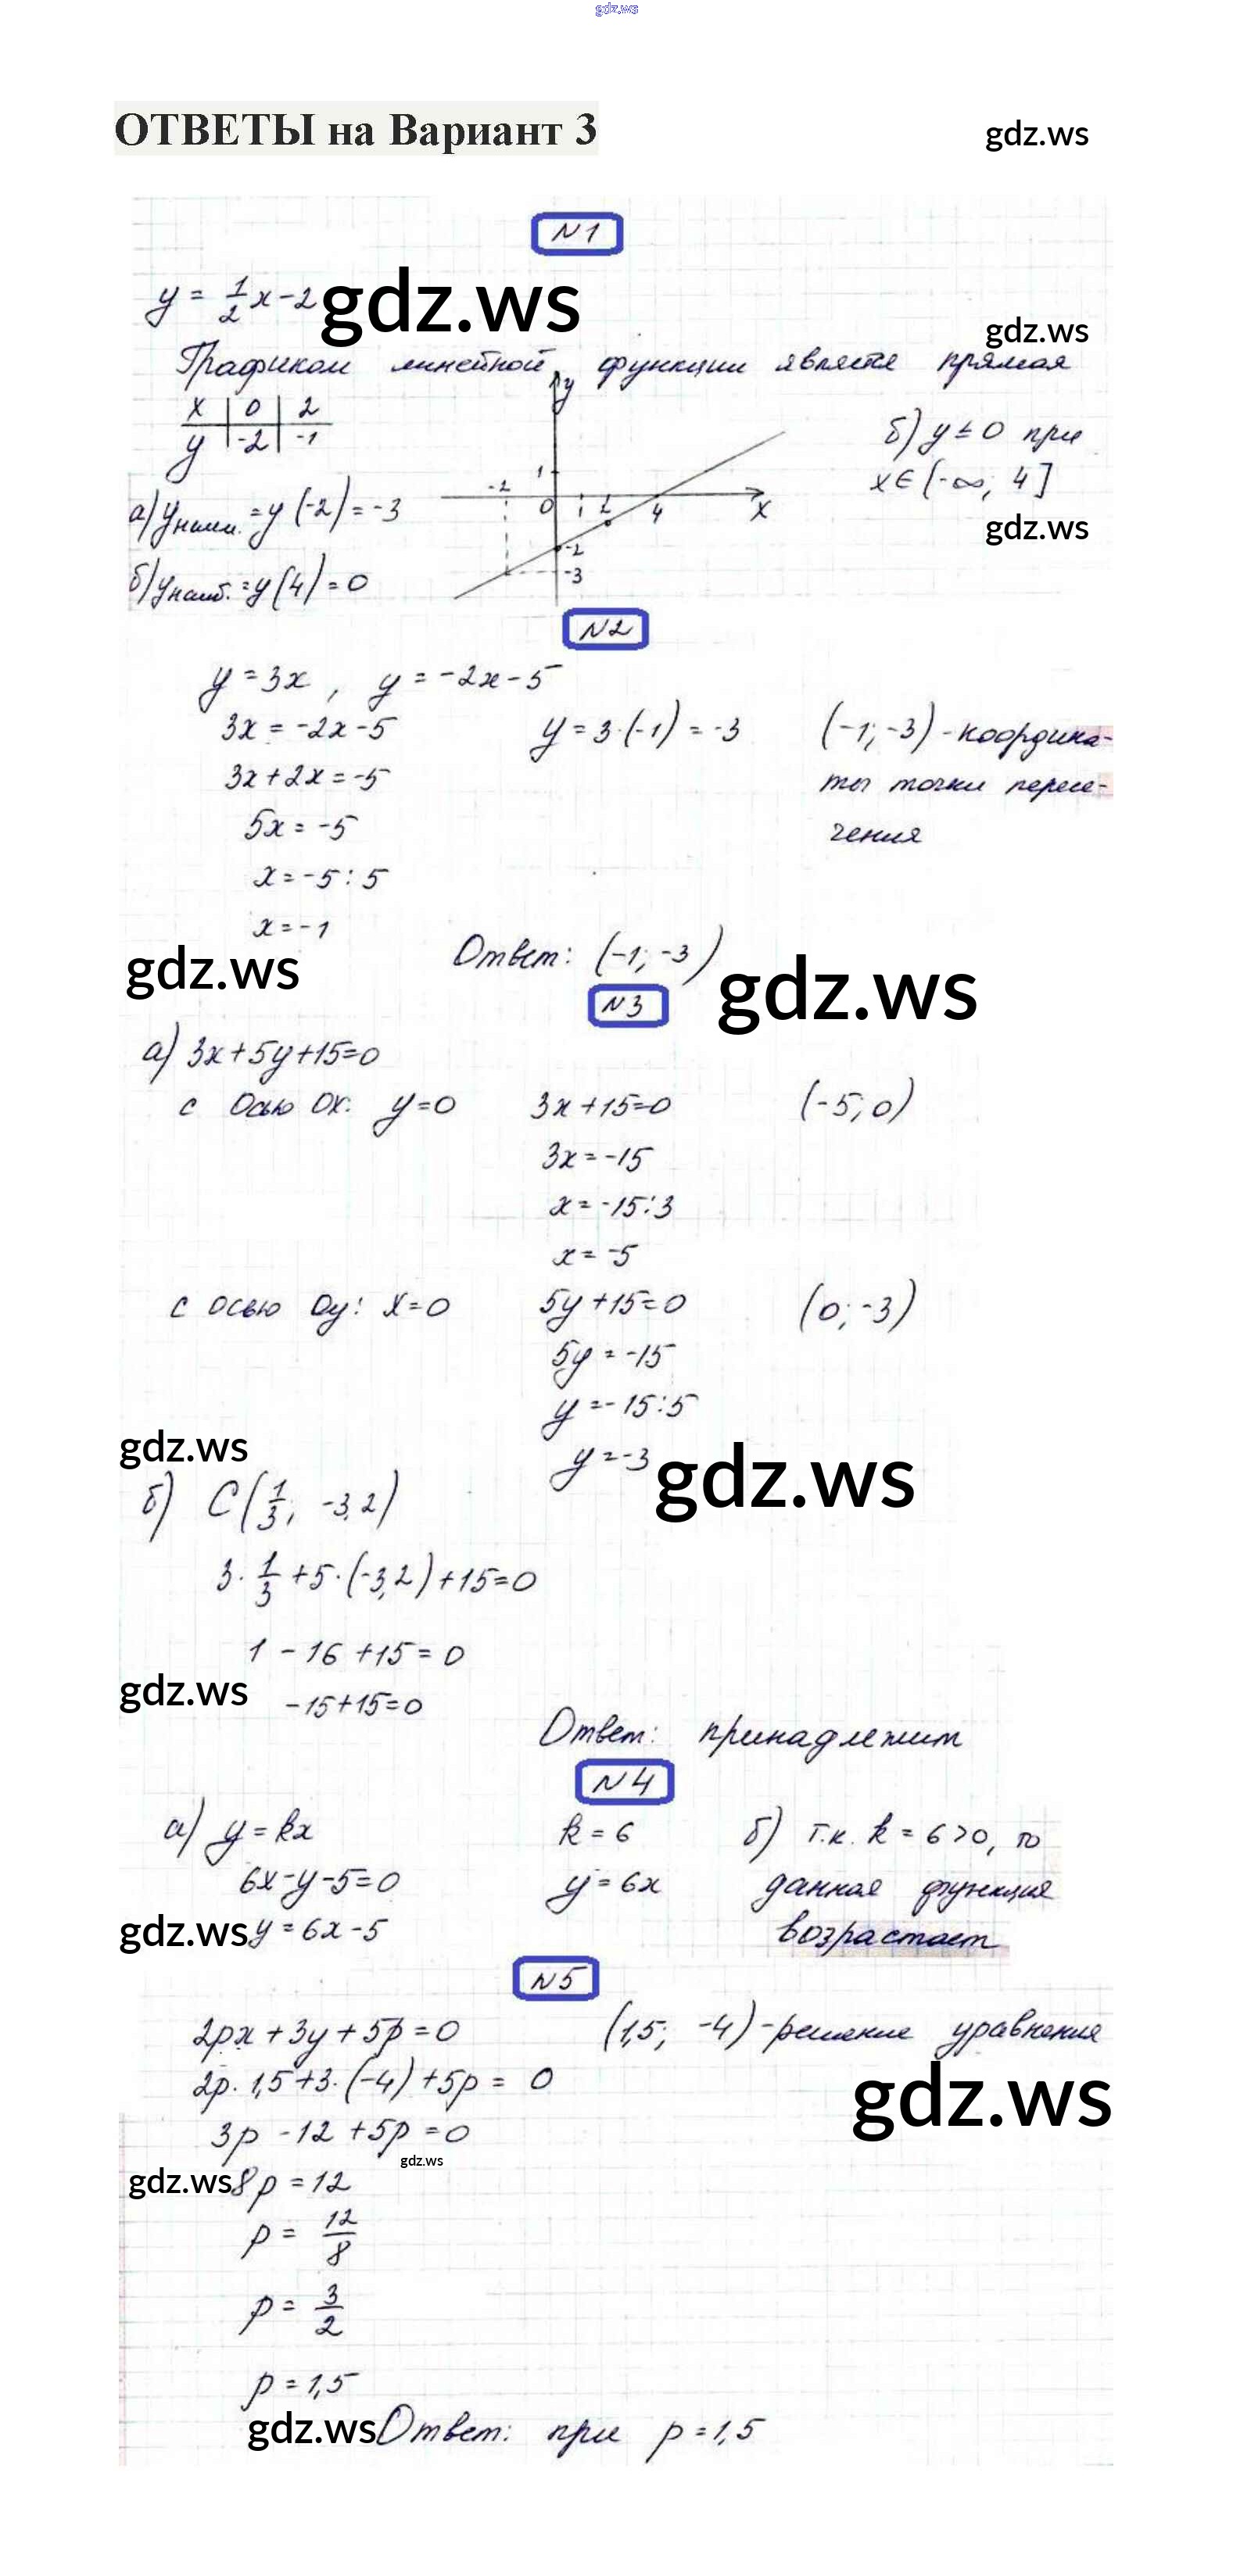 gdz.ws
ОТВЕТЫ на Вариант 3
gdz.ws
N1
y = 1/2 x - 2 gdz.ws
gdz.ws
Графиком линейной функции является прямая
x | 0 | 2
y | -2 | -1
y
1
-2
0 1 2 4 x
-2
-3
а) y наим. = y(-2) = -3
б) y наиб. = y(4) = 0
б) y ≤ 0 при
x ∈ (-∞; 4]
gdz.ws
N2
y = 3x , y = -2x - 5
3x = -2x - 5 y = 3·(-1) = -3 (-1; -3) - координа-
3x + 2x = -5 ты точки пересе-
5x = -5 чения
x = -5 : 5
x = -1
gdz.ws Ответ: (-1; -3) gdz.ws
N3
а) 3x + 5y + 15 = 0
с осью Ox: y = 0 3x + 15 = 0 (-5; 0)
3x = -15
x = -15 : 3
x = -5
с осью Oy: x = 0 5y + 15 = 0 (0; -3)
5y = -15
y = -15 : 5
gdz.ws y = -3 gdz.ws
б) C(1/3; -3,2)
3 · 1/3 + 5 · (-3,2) + 15 = 0
1 - 16 + 15 = 0
gdz.ws -15 + 15 = 0
Ответ: принадлежит
N4
а) y = kx k = 6 б) т.к. k = 6 > 0, то
6x - y - 5 = 0 y = 6x данная функция
gdz.ws y = 6x - 5 возрастает
N5
2px + 3y + 5p = 0 (1,5; -4) - решение уравнения
2p · 1,5 + 3 · (-4) + 5p = 0 gdz.ws
3p - 12 + 5p = 0
gdz.ws
gdz.ws 8p = 12
p = 12/8
p = 3/2
p = 1,5
gdz.ws Ответ: при p = 1,5